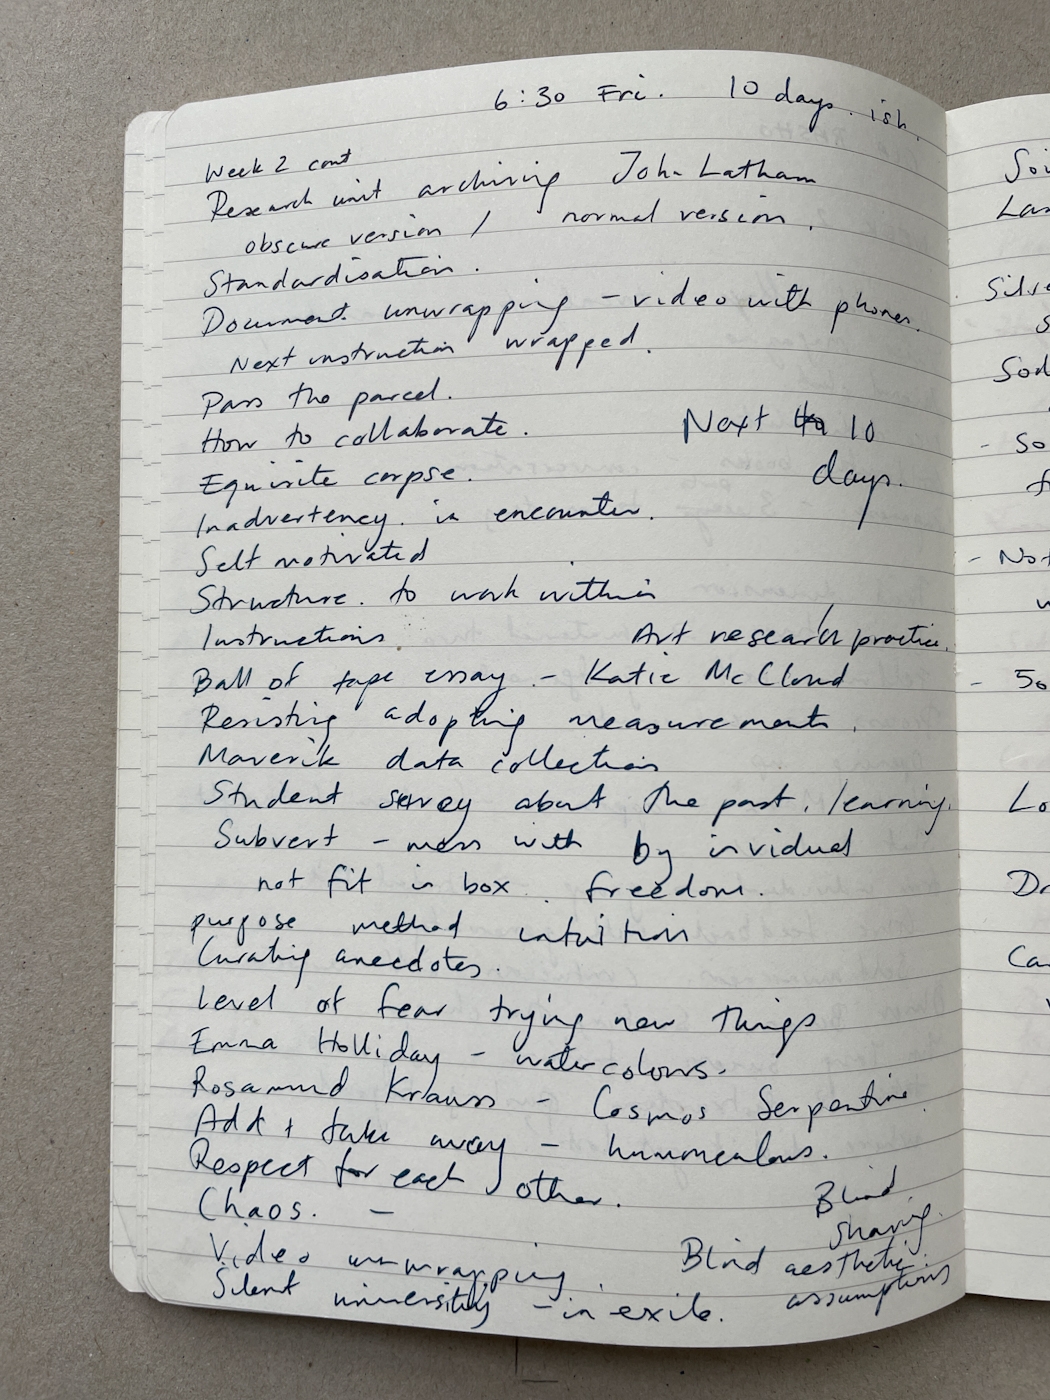 6:30 Fri. 10 days. ish.
Week 2 cont
Research unit archiving John Latham
obscure version / normal version.
Standardisation.
Document unwrapping - video with phones.
Next instruction wrapped.
Pass the parcel.
How to collaborate.
Next 10
Equisite corpse.
days.
Inadvertency. in encounter.
Self motivated
Structure. to work within
Instructions
Art research/practice.
Ball of tape essay - Katie McCloud
Resisting adopting measurements.
Maverik data collection
Student servey about the past, learning.
Subvert - mess with by invidual
not fit in box. freedom.
purpose method intuition
Curating anecdotes.
Level of fear trying new things
Emma Holliday - watercolours.
Rosamund Krauss - Cosmos Serpentine.
Add + take away -
Respect for each other.
Chaos. -
Blind
sharing.
Video unwrapping.
Blind aesthetic
assumptions
Silent university - in exile.
Soi
Las
Silve
s
Sod
- So
f
- Not
w
- So
Lo
Dr
Ca